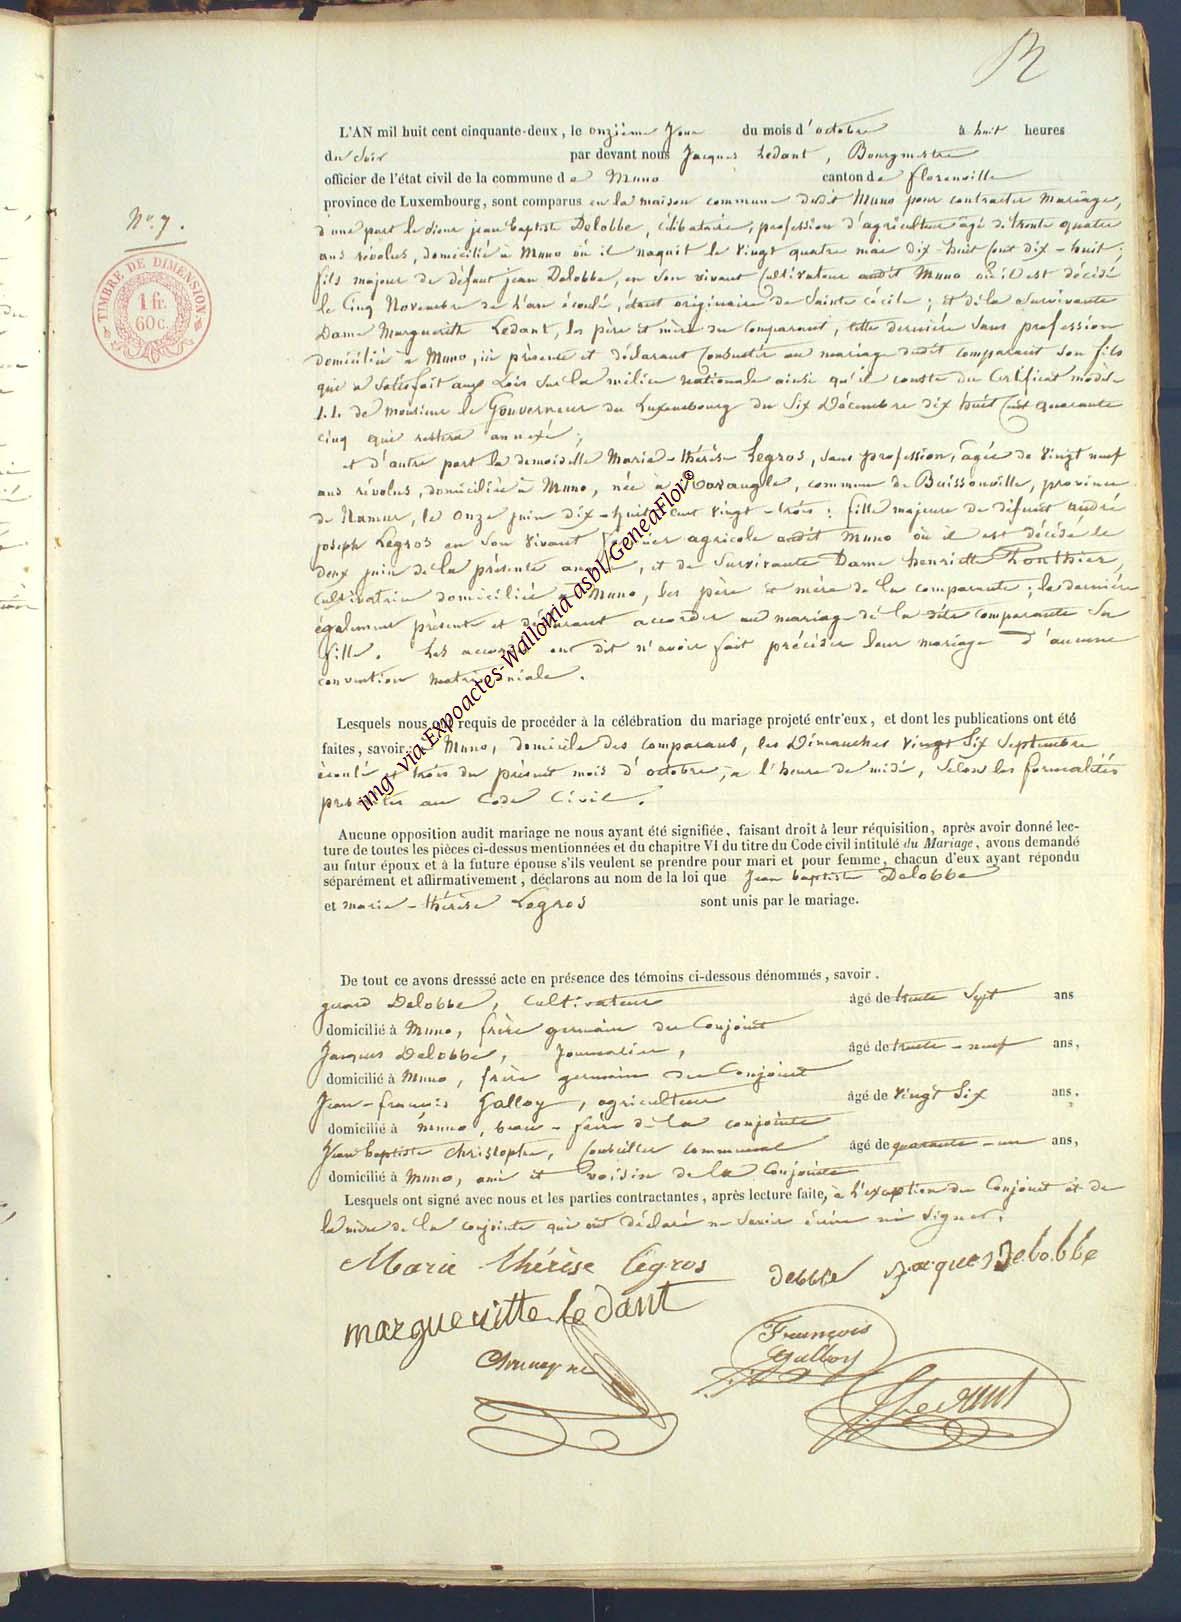 N° 7.
TIMBRE DE DIMENSION.
1 fr.
60 c.
L'AN mil huit cent cinquante-deux, le onzième Jour du mois d'octobre à huit heures
du Soir par devant nous Jacques Ledant, Bourgmestre
officier de l'état civil de la commune de Muno canton de florenville
province de Luxembourg, sont comparus en la maison commune dudit Muno pour contracter Mariage,
d'une part le sieur jean baptiste Delobbe, célibataire, profession d'agriculteur âgé de trente quatre
ans révolus, domicilié à Muno où il naquit le vingt quatre mai dix-huit Cent dix-huit;
fils majeur de défunt jean Delobbe, en Son vivant Cultivateur audit Muno où il est décédé
le Cinq Novembre de l'an écoulé, étant originaire de Sainte cécile; et de la survivante
Dame Marguerithe Ledant, les père et mère du Comparant, cette dernière Sans profession
domiciliée à Muno, ici présente et déclarant Consentir au mariage dudit comparant Son fils
qui a Satisfait aux Lois Sur la milice nationale ainsi qu'il conste du Certificat modèle
L.L. de monsieur le Gouverneur du Luxembourg du Six Décembre dix huit Cent quarante
cinq qui restera annexé;
et d'autre part la demoiselle Marie-thérèse Legros, Sans profession, âgée de Vingt neuf
ans révolus, domiciliée à Muno, née à Havrangle, commune de Buissonville, province
de Namur, le onze juin dix-huit cent vingt-trois: fille majeure de défunt andré
joseph Legros en Son vivant agricole audit Muno où il est décédé le
deux juin de la présente année, et de Survivante Dame henriette Ponthier,
Cultivatrice domiciliée à Muno, Les père et mère de la comparante; la dernière
également présente et déclarant accorder au mariage de la dite comparante Sa
fille. Les accordés ont dit n'avoir fait précéder leur mariage d'aucune
convention matrimoniale.
Lesquels nous ont requis de procéder à la célébration du mariage projeté entr'eux, et dont les publications ont été
faites, savoir: à Muno, domicile des comparans, les Dimanches vingt Six Septembre
écoulé et trois du présent mois d'octobre, à l'heure de midi, Selon les formalités
prescrites au Code Civil.
Aucune opposition audit mariage ne nous ayant été signifiée, faisant droit à leur réquisition, après avoir donné lec-
ture de toutes les pièces ci-dessus mentionnées et du chapitre VI du titre du Code civil intitulé du Mariage, avons demandé
au futur époux et à la future épouse s'ils veulent se prendre pour mari et pour femme, chacun d'eux ayant répondu
séparément et affirmativement, déclarons au nom de la loi que Jean baptiste Delobbe
et marie-thérèse Legros sont unis par le mariage.
De tout ce avons dresssé acte en présence des témoins ci-dessous dénommés, savoir.
gerard Delobbe, Cultivateur âgé de trente Sept ans
domicilié à Muno, frère germain du Conjoint
Jacques Delobbe, Journalier, âgé de trente-neuf ans,
domicilié à Muno, frère germain du Conjoint
Jean-françois Galloy, agriculteur âgé de vingt Six ans.
domicilié à Muno, beau-frère de la conjointe
Jean baptiste christophe, Conseiller communal âgé de quarante-un ans,
domicilié à Muno, ami et voisin de la Conjointe
Lesquels ont signé avec nous et les parties contractantes, après lecture faite, à l'exception du Conjoint et de
la mère de la conjointe qui ont déclaré ne Savoir écrire ni signer.
Marie thérèse Legros
Jaques Delobbe
margueritte ledant
François
Galloy
Ledant
img via Expoactes-Wallonia asbl/GeneaFlor®